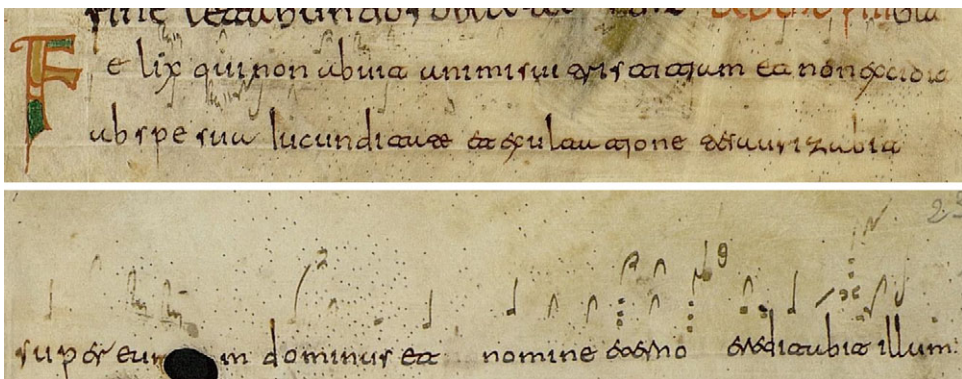 Felix qui non abuit animi sui tristitiam et non excidit
ab spe sua Iucunditate et exultatione tesaurizabit
23
super eum dominus et nomine eterno ereditabit illum.